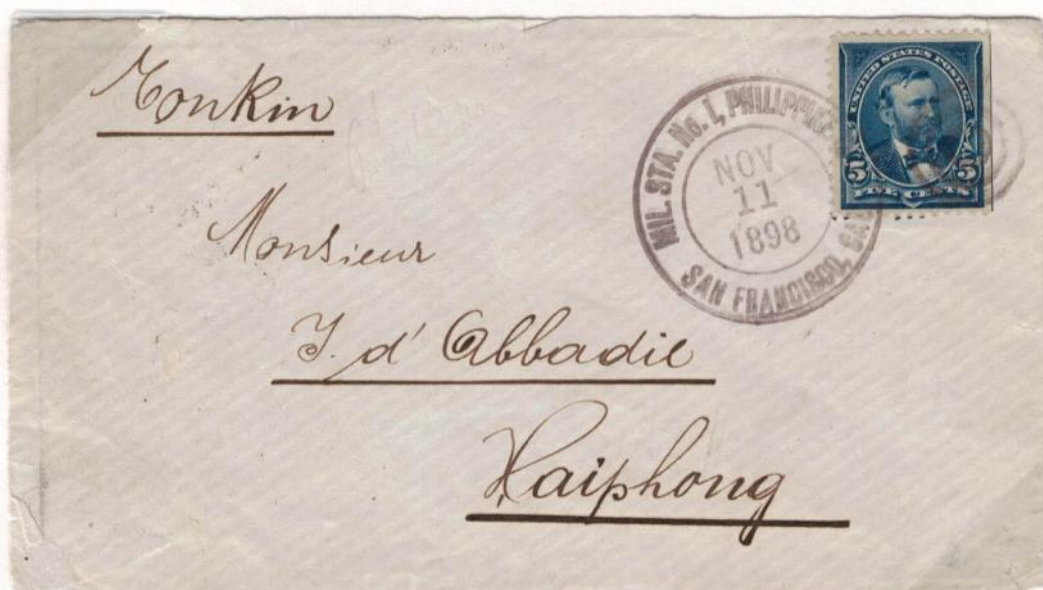 Tonkin
MIL. STA. No. 1, PHILIPPINE
NOV
11
1898
SAN FRANCISCO, CAL
UNITED STATES POSTAGE
5 5
FIVE CENTS
Monsieur
J. d' Abbadie
Haiphong